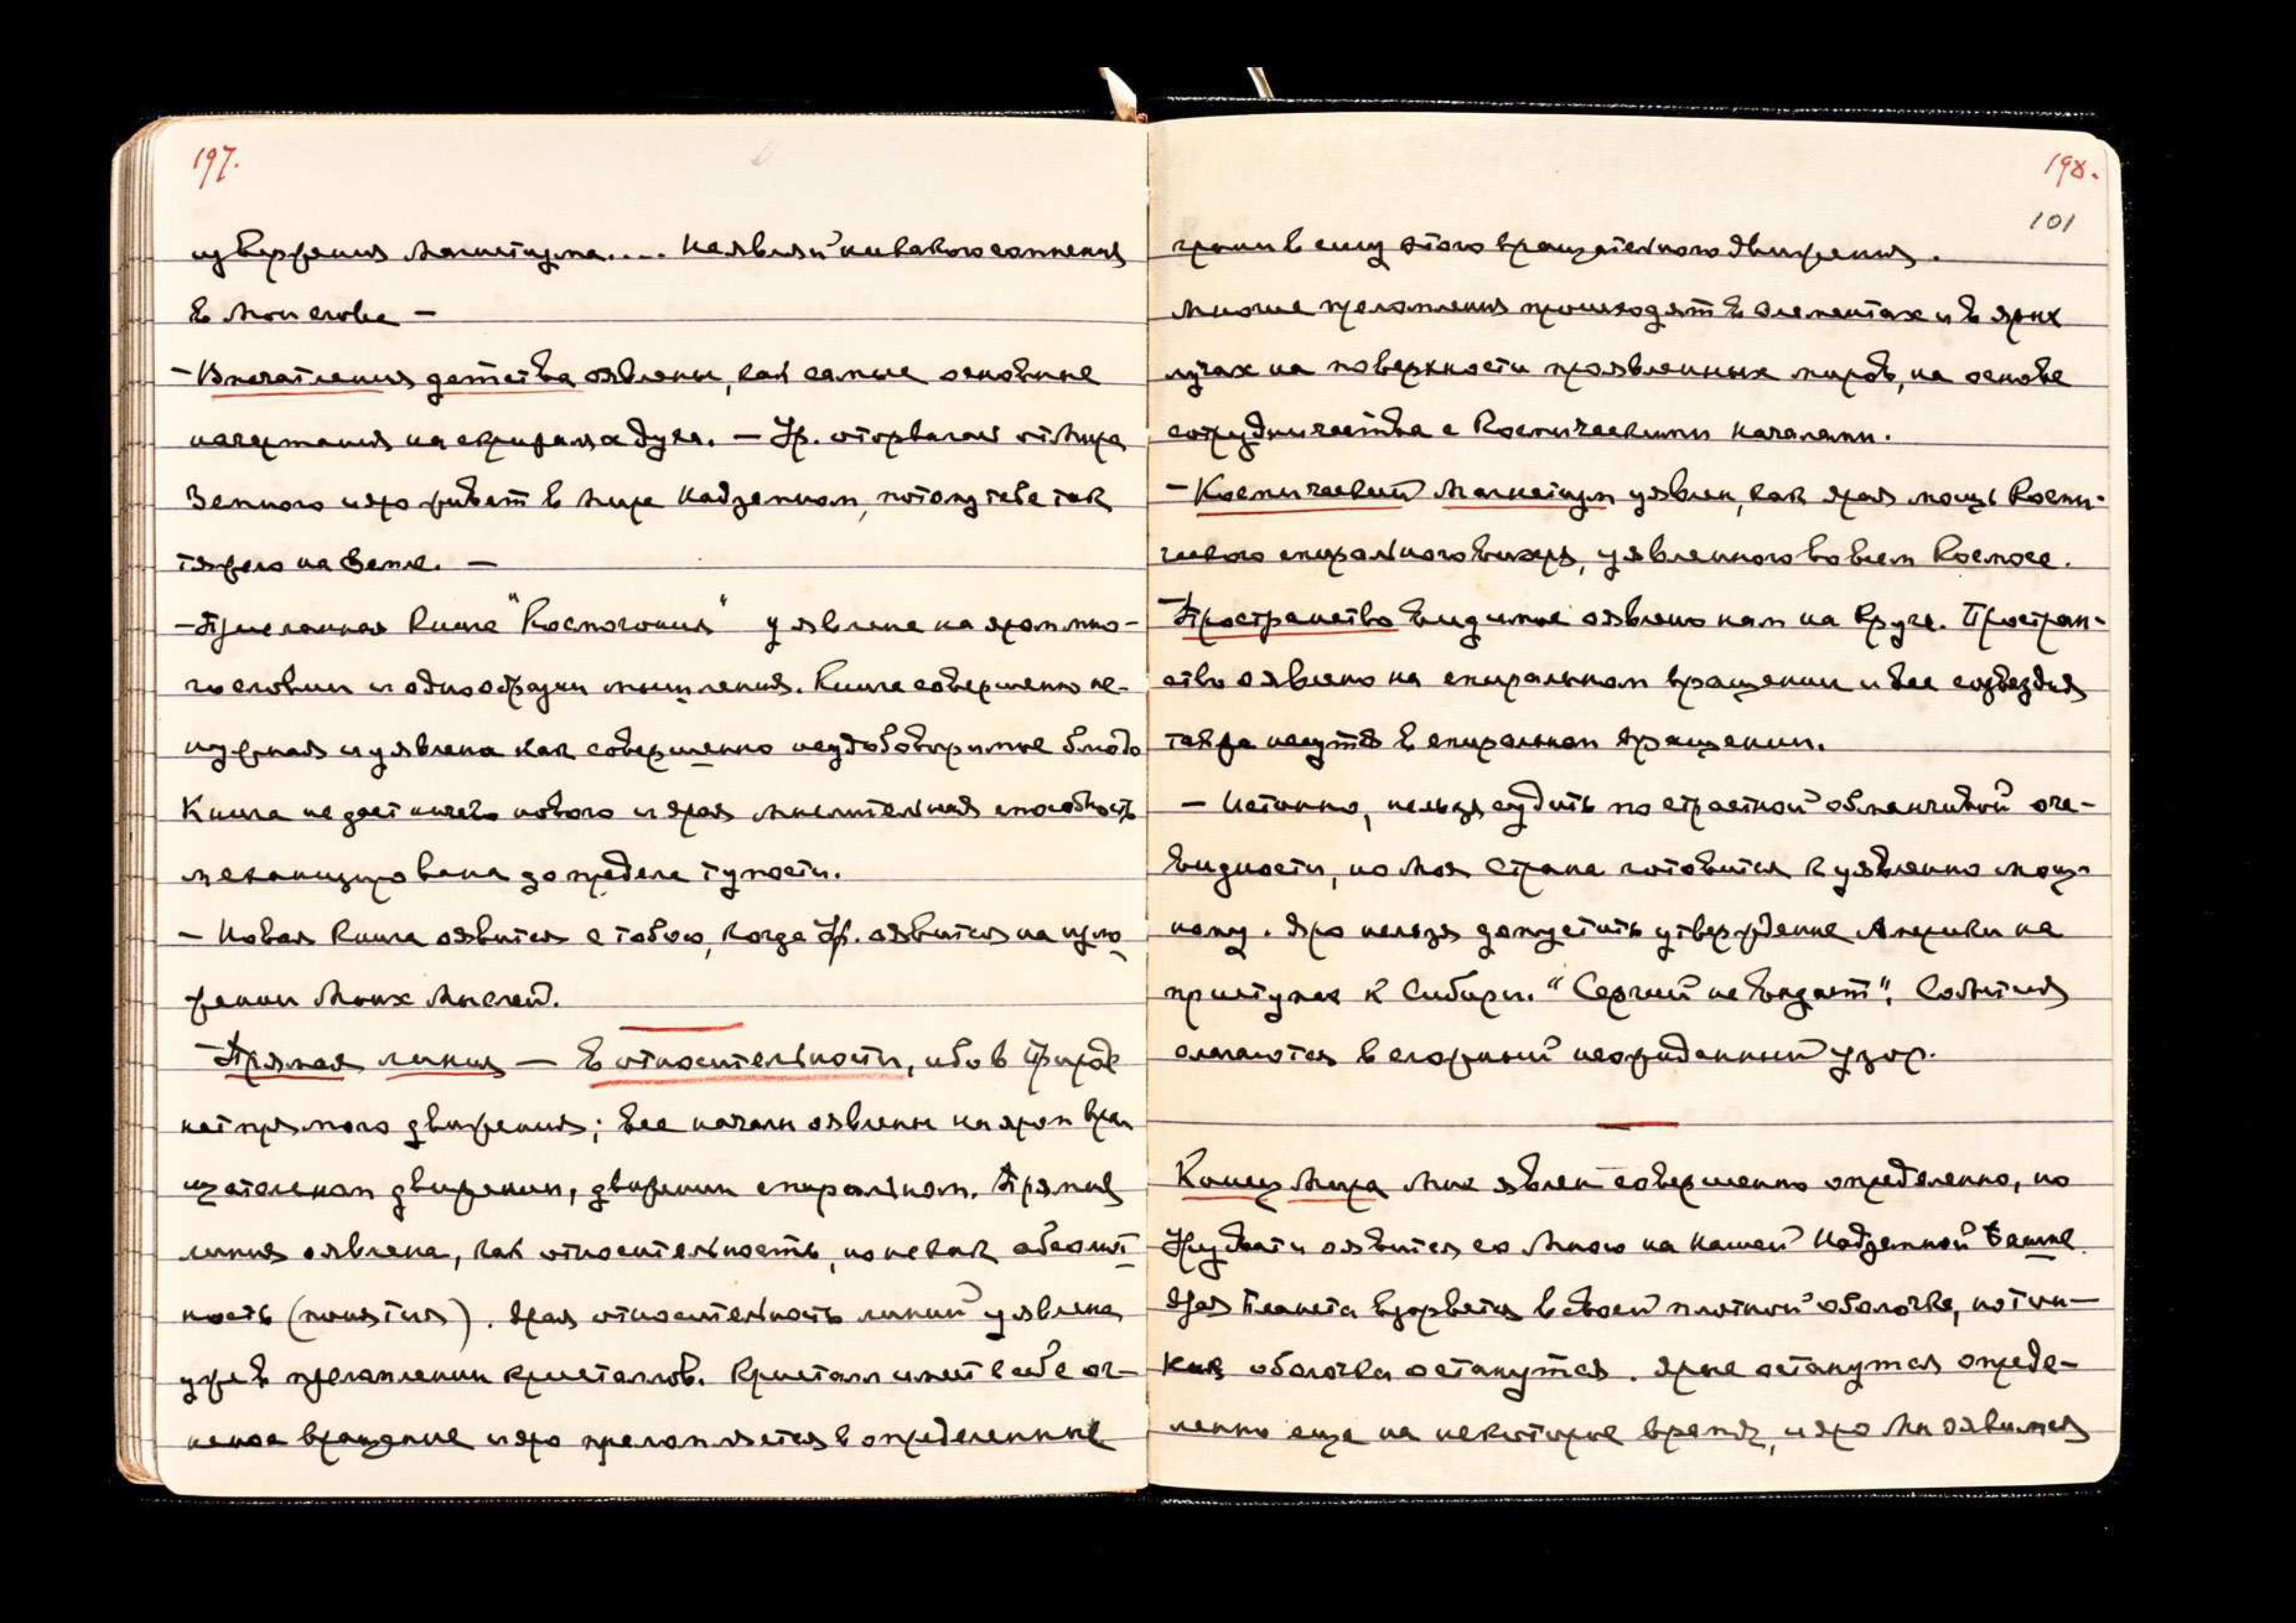 197.
извержения магнетизма.... Не являй никакого сомнения
в Мои слова —
— Впечатления детства оявлены, как самые основные
начертания на скрижалях духа. — Ур. оторвалась от Мира
Земного и яро живет в Мире Надземном, потому тебе так
тяжело на Земле. —
— Присланная книга "Космогония" уявлена на яром мно-
гословии и однообразии мышления. Книга совершенно не-
нужная и уявлена как совершенно неудобоваримое блюдо
Книга не дает ничего нового и ярая мыслительная способность
механизирована до предела тупости.
— Новая книга оявится с тобою, когда Ур. оявится на изло
жении Моих Мыслей.
— Прямая линия — в относительности, ибо в Природе
нет прямого движения; все начали оявлены на яром вра
щательном движении, движении спиральном. Прямая
линия оявлена, как относительность, но не как абсолют
ность (понятия). Ярая относительность линий уявлена
уже в преломлении кристаллов. Кристалл имеет в себе ог-
ненное вращение и яро преломляется в определенные
198.
101
грани в силу этого вращательного движения.
Многие преломления происходят в элементах и в ярых
лучах на поверхности проявленных миров, на основе
сотрудничества с Космическими Началами.
— Космический Магнетизм уявлен, как ярая мощь Косми-
ческого спирального вихря, уявленного во всем Космосе.
— Пространство видимое оявлено нам на Круге. Простран-
ство оявлено на спиральном вращении и все созвездия
также несутся в спиральном вращении.
— Истинно, нельзя судить по страстной обманчивой оче-
видности, но Моя Страна готовится к уявлению мощ-
ному. Яро нельзя допустить утверждение Америки на
приступах к Сибири. "Сергий не выдаст". События
слагаются в сложный неожиданный узор.
Конец Мира Мик явлен совершенно определенно, но
Урусвати оявится со Мною на Нашей Надземной Башне.
Ярая Планета взорвется в своей плотной оболочке, но тон-
кая оболочка останутся. Ярые останутся опреде-
ленно еще на некоторое время, и яро Мы оявимся